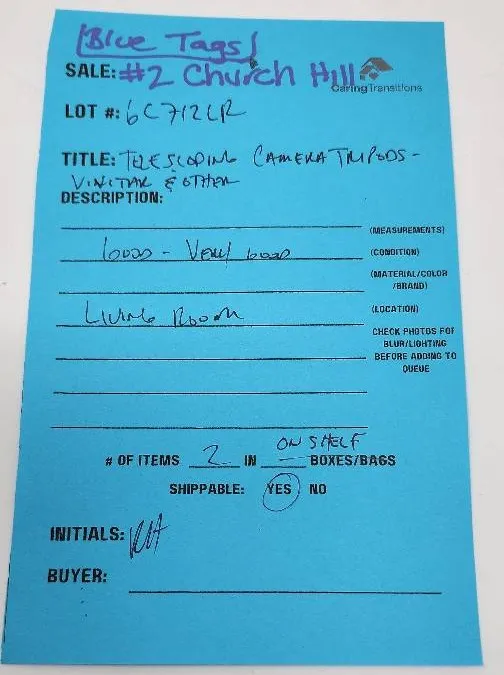 [Blue Tags]
SALE: #2 Church Hill
CaringTransitions
LOT #: 6C712LR
TITLE: TELESCOPING CAMERA TRIPODS -
VIVITAR & OTHER
DESCRIPTION:
(MEASUREMENTS)
GOOD - VERY GOOD (CONDITION)
(MATERIAL/COLOR
/BRAND)
LIVING ROOM (LOCATION)
CHECK PHOTOS FOR
BLUR/LIGHTING
BEFORE ADDING TO
QUEUE
ON SHELF
# OF ITEMS 2 IN — BOXES/BAGS
SHIPPABLE: YES NO
INITIALS:
BUYER: